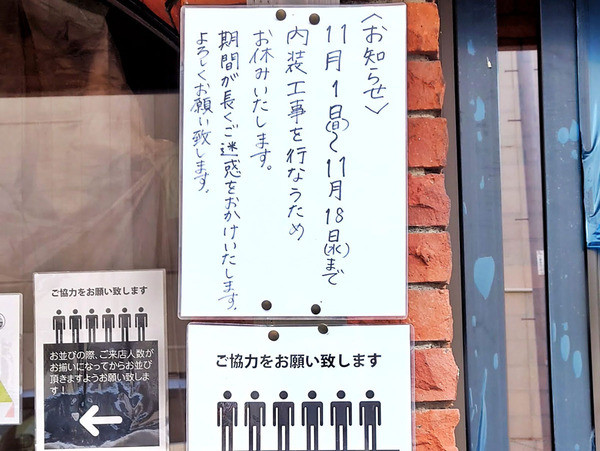 〈お知らせ〉
11月1日(日)〜11月18日(水)まで
内装工事を行なうため
お休みいたします。
期間が長くご迷惑をおかけいたします。
よろしくお願い致します。
ご協力をお願い致します
お並びの際、ご来店人数が
お揃いになってからお並び
頂きますようお願い致しま
す！
ご協力をお願い致します